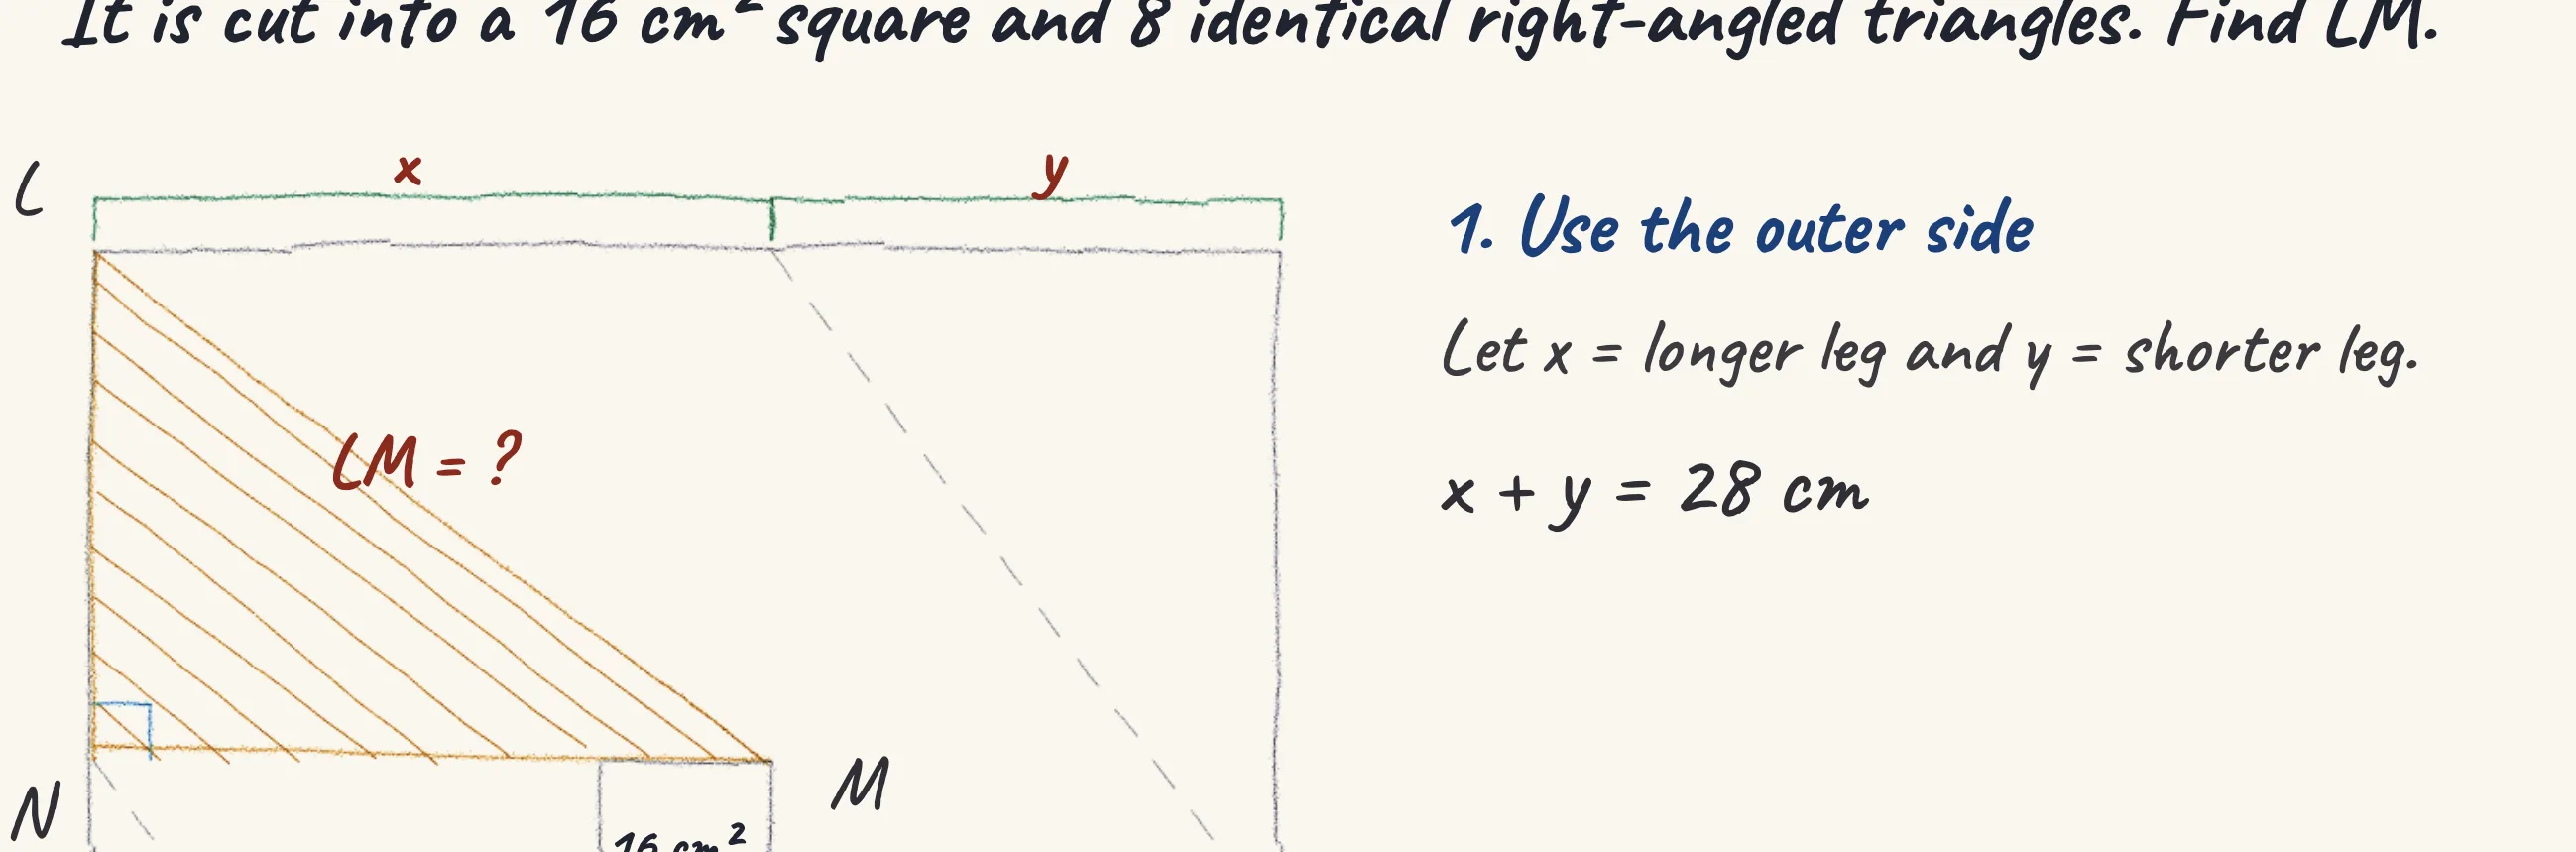 It is cut into a 16 cm² square and 8 identical right-angled triangles. Find LM.
x
y
L
1. Use the outer side
Let x = longer leg and y = shorter leg.
LM = ?
x + y = 28 cm
M
N
16 cm²